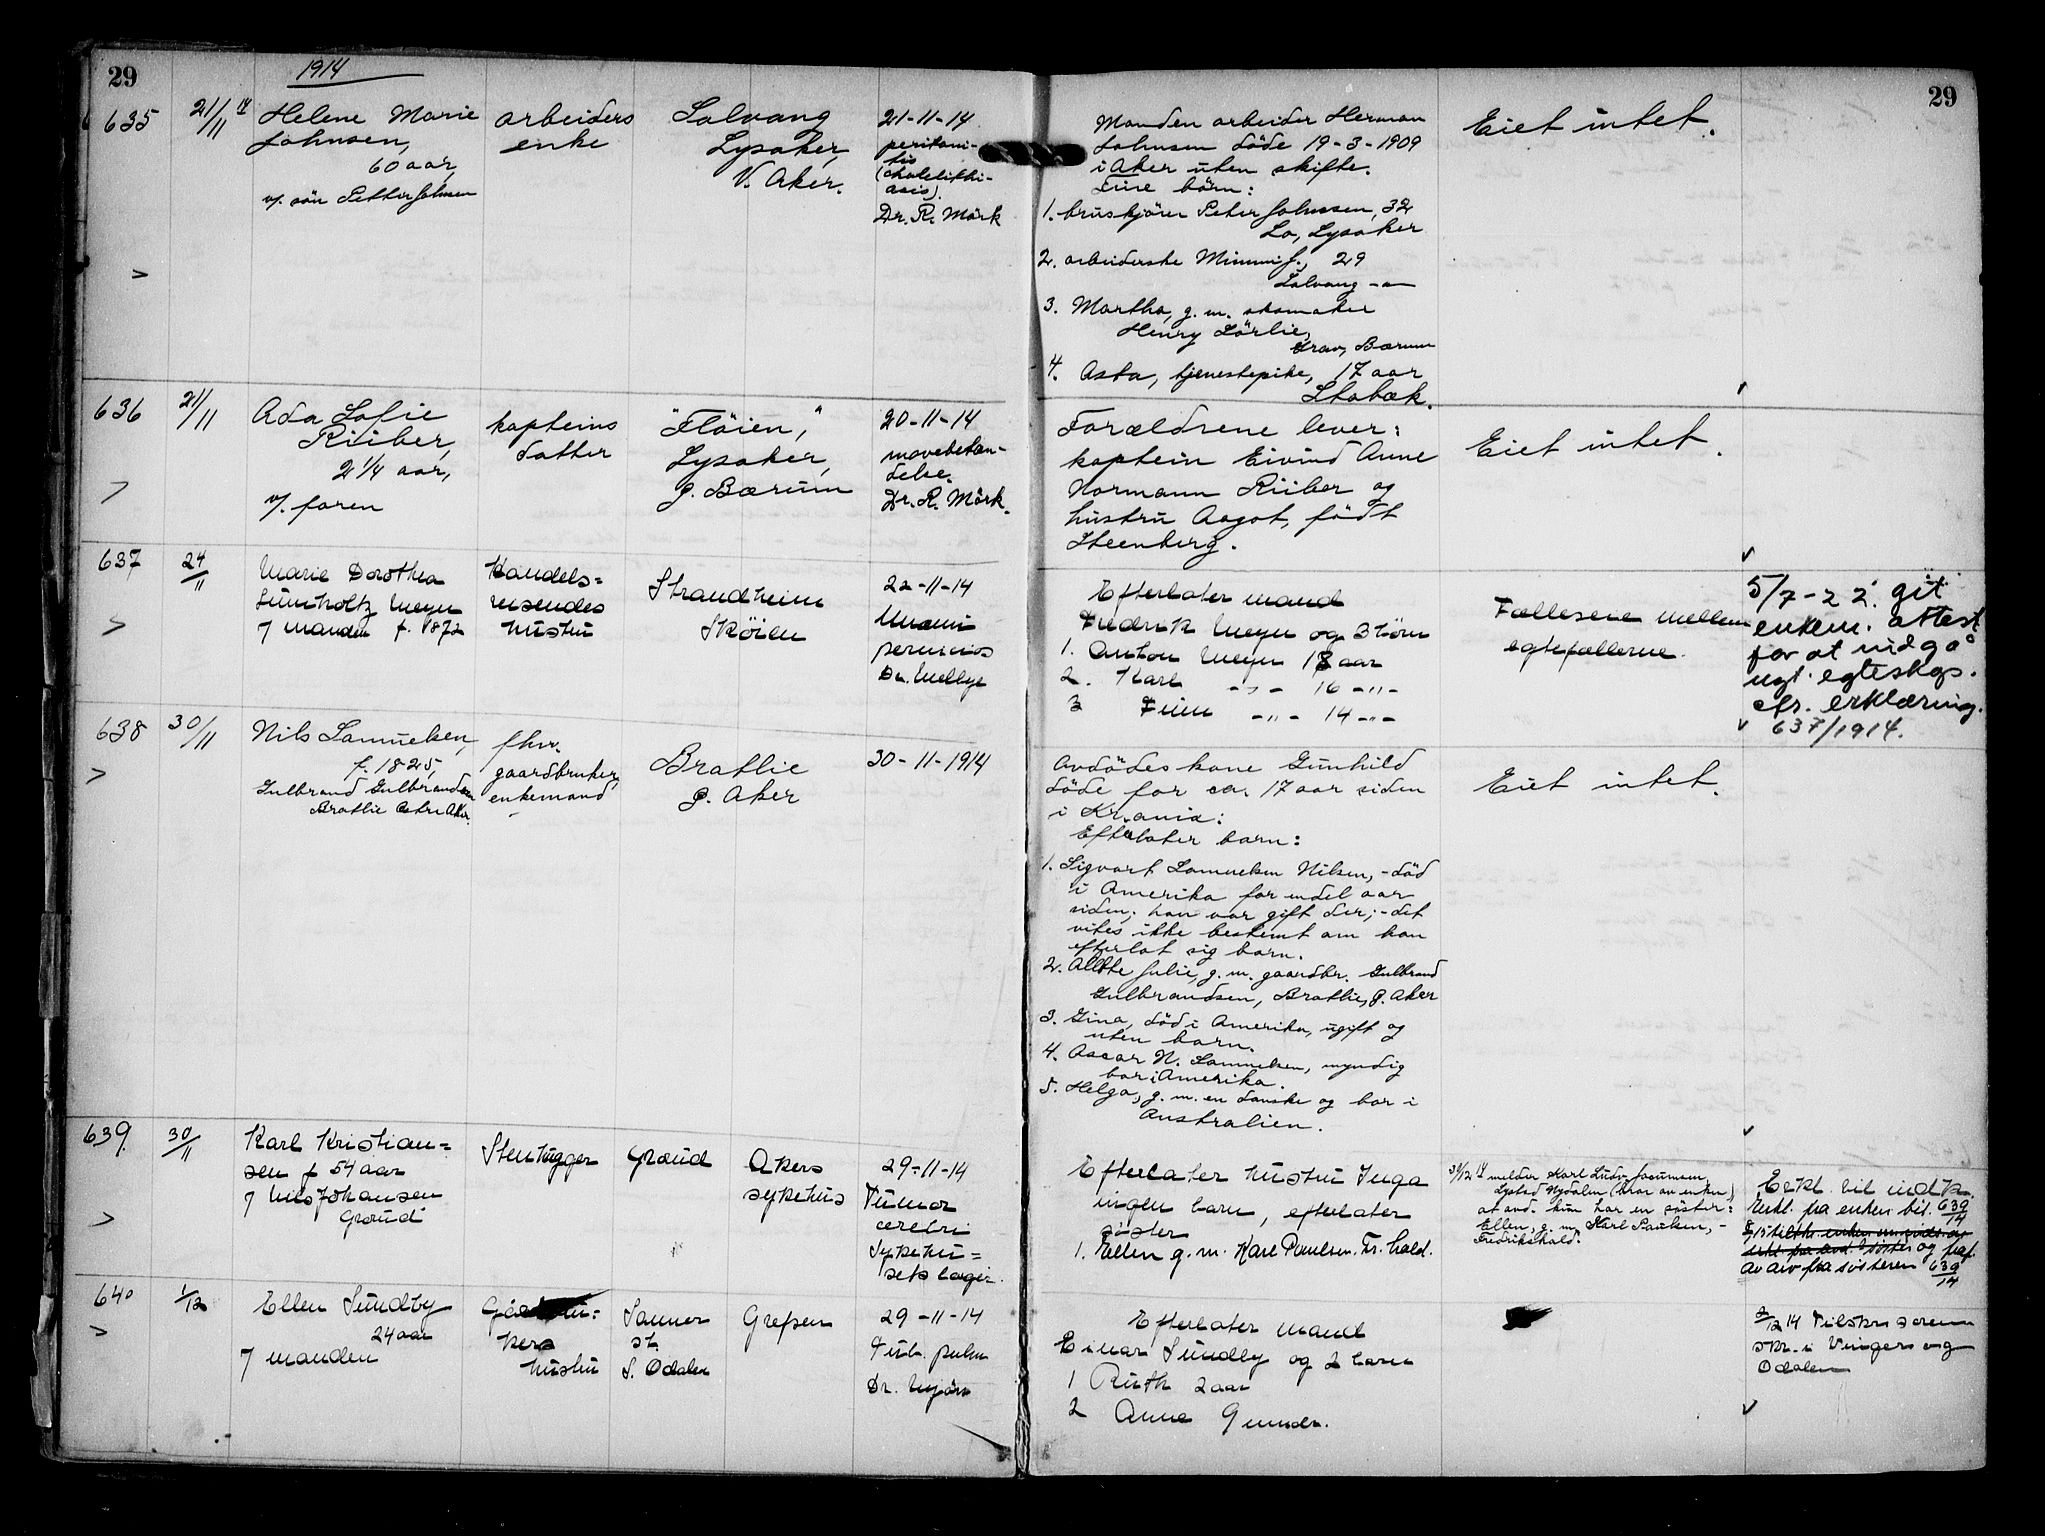 29
1914
29
635
21/11 14
Helene Marie
Johnsen,
60 aar,
v/. sön Petter Johnsen
arbeiders
enke
Solvang
Lysaker,
V. Aker.
21-11-14
peritoni-
tis
(cholelithi-
asis).
Dr. R. Mörk
Manden arbeider Herman
Johnsen döde 19-3-1909
i Aker uten skifte.
Fire börn:
1. bruskjörer Peter Johnsen, 32
Lo, Lysaker
2. arbeiderske Mimmi J., 29
Solvang
3. Martha, g. m. skomaker
Henry Lörlie,
Grav, Bærum
4. Asta, tjenestepike, 17 aar
Stabæk.
Eiet intet.
636
21/11
Ada Sofie
Riiber,
2 1/4 aar,
v/. faren
kapteins
datter
"Flöien,"
Lysaker,
g. Bærum
20-11-14
mavebetæn-
delse.
Dr. R. Mörk.
Forældrene lever:
kaptein Eivind Anne
Normann Riiber og
hustru Aagot, födt
Steenberg.
Eiet intet.
637
24/11
Marie Dorothea
Sumholtz Meyer
7 manden f. 1872
Handels=
reisendes
hustru
Strandheim
Sköien
22-11-14
perniciös
Dr. Mellye
Efterlater mand
Fredrik Meyer og 3 börn
1. Anton Meyer 18 aar
2. Karl -"- 16 -"-
3 Finn -"- 14 -"-
Fælleseie mellem
egtefællerne.
5/7-22. git
enkem. attest
for at indgå
nyt. egteskap.
cfr. erklæring.
637/1914.
638
30/11
Nils Samuelsen,
f. 1825,
Gulbrand Gulbrandsen
Bratlie Østre Aker.
fhv.
gaardbruker,
enkemand
Bratlie
g. Aker
30-11-1914
Avdödes kone Gunhild
döde for ca. 17 aar siden
i Kr.ania:
Efterlater barn:
1. Sigvart Samuelsen Nilsen, - död
i Amerika for endel aar
siden; han var gift der; - det
vites ikke bestemt om han
efterlot sig barn.
2. Alette Julie, g. m. gaardbr. Gulbrand
Gulbrandsen, Bratlie, g. Aker
3. Gina, död i Amerika, ugift og
uten barn.
4. Oscar N. Samuelsen, myndig
bor i Amerika.
5. Helga, g. m. en danske og bor i
Australien.
Eiet intet.
639.
30/11
Karl Kristian=
sen f 54 aar
7 Nils Johansen
Grorud
Stenhugger
Grorud
Akers
sykehus
29-11-14
Tumor
cerebri
Sykehu=
sets læger.
Efterlater hustru Inga
ingen barn, efterlater
söster
1. Ellen g. m. Karl Paulsen. Fr.hald.
31/12 14 melder Karl Ludv. Joramsen,
Lysted Nydalen (bror av enken)
at avd. kun har en söster:
Ellen, g. m. Karl Paulsen, -
Fredrikshald.
Erkl. bil. indk.
Erkl. fra enken bil. 639/14
av arv fra sösteren 639/14
640
1/12
Ellen Sundby
24 aar
7 manden
hustru
Sanner
st.
S. Odalen
Grefsen
29-11-14
Tub. pulm
Dr. Mjöen
Efterlater mand
Einar Sundby og 2 barn
1 Ruth 2 aar
2 Anne 9 mndr.
2/12 14 Tilskr. soren=
skr. i Vinger og
Odalen